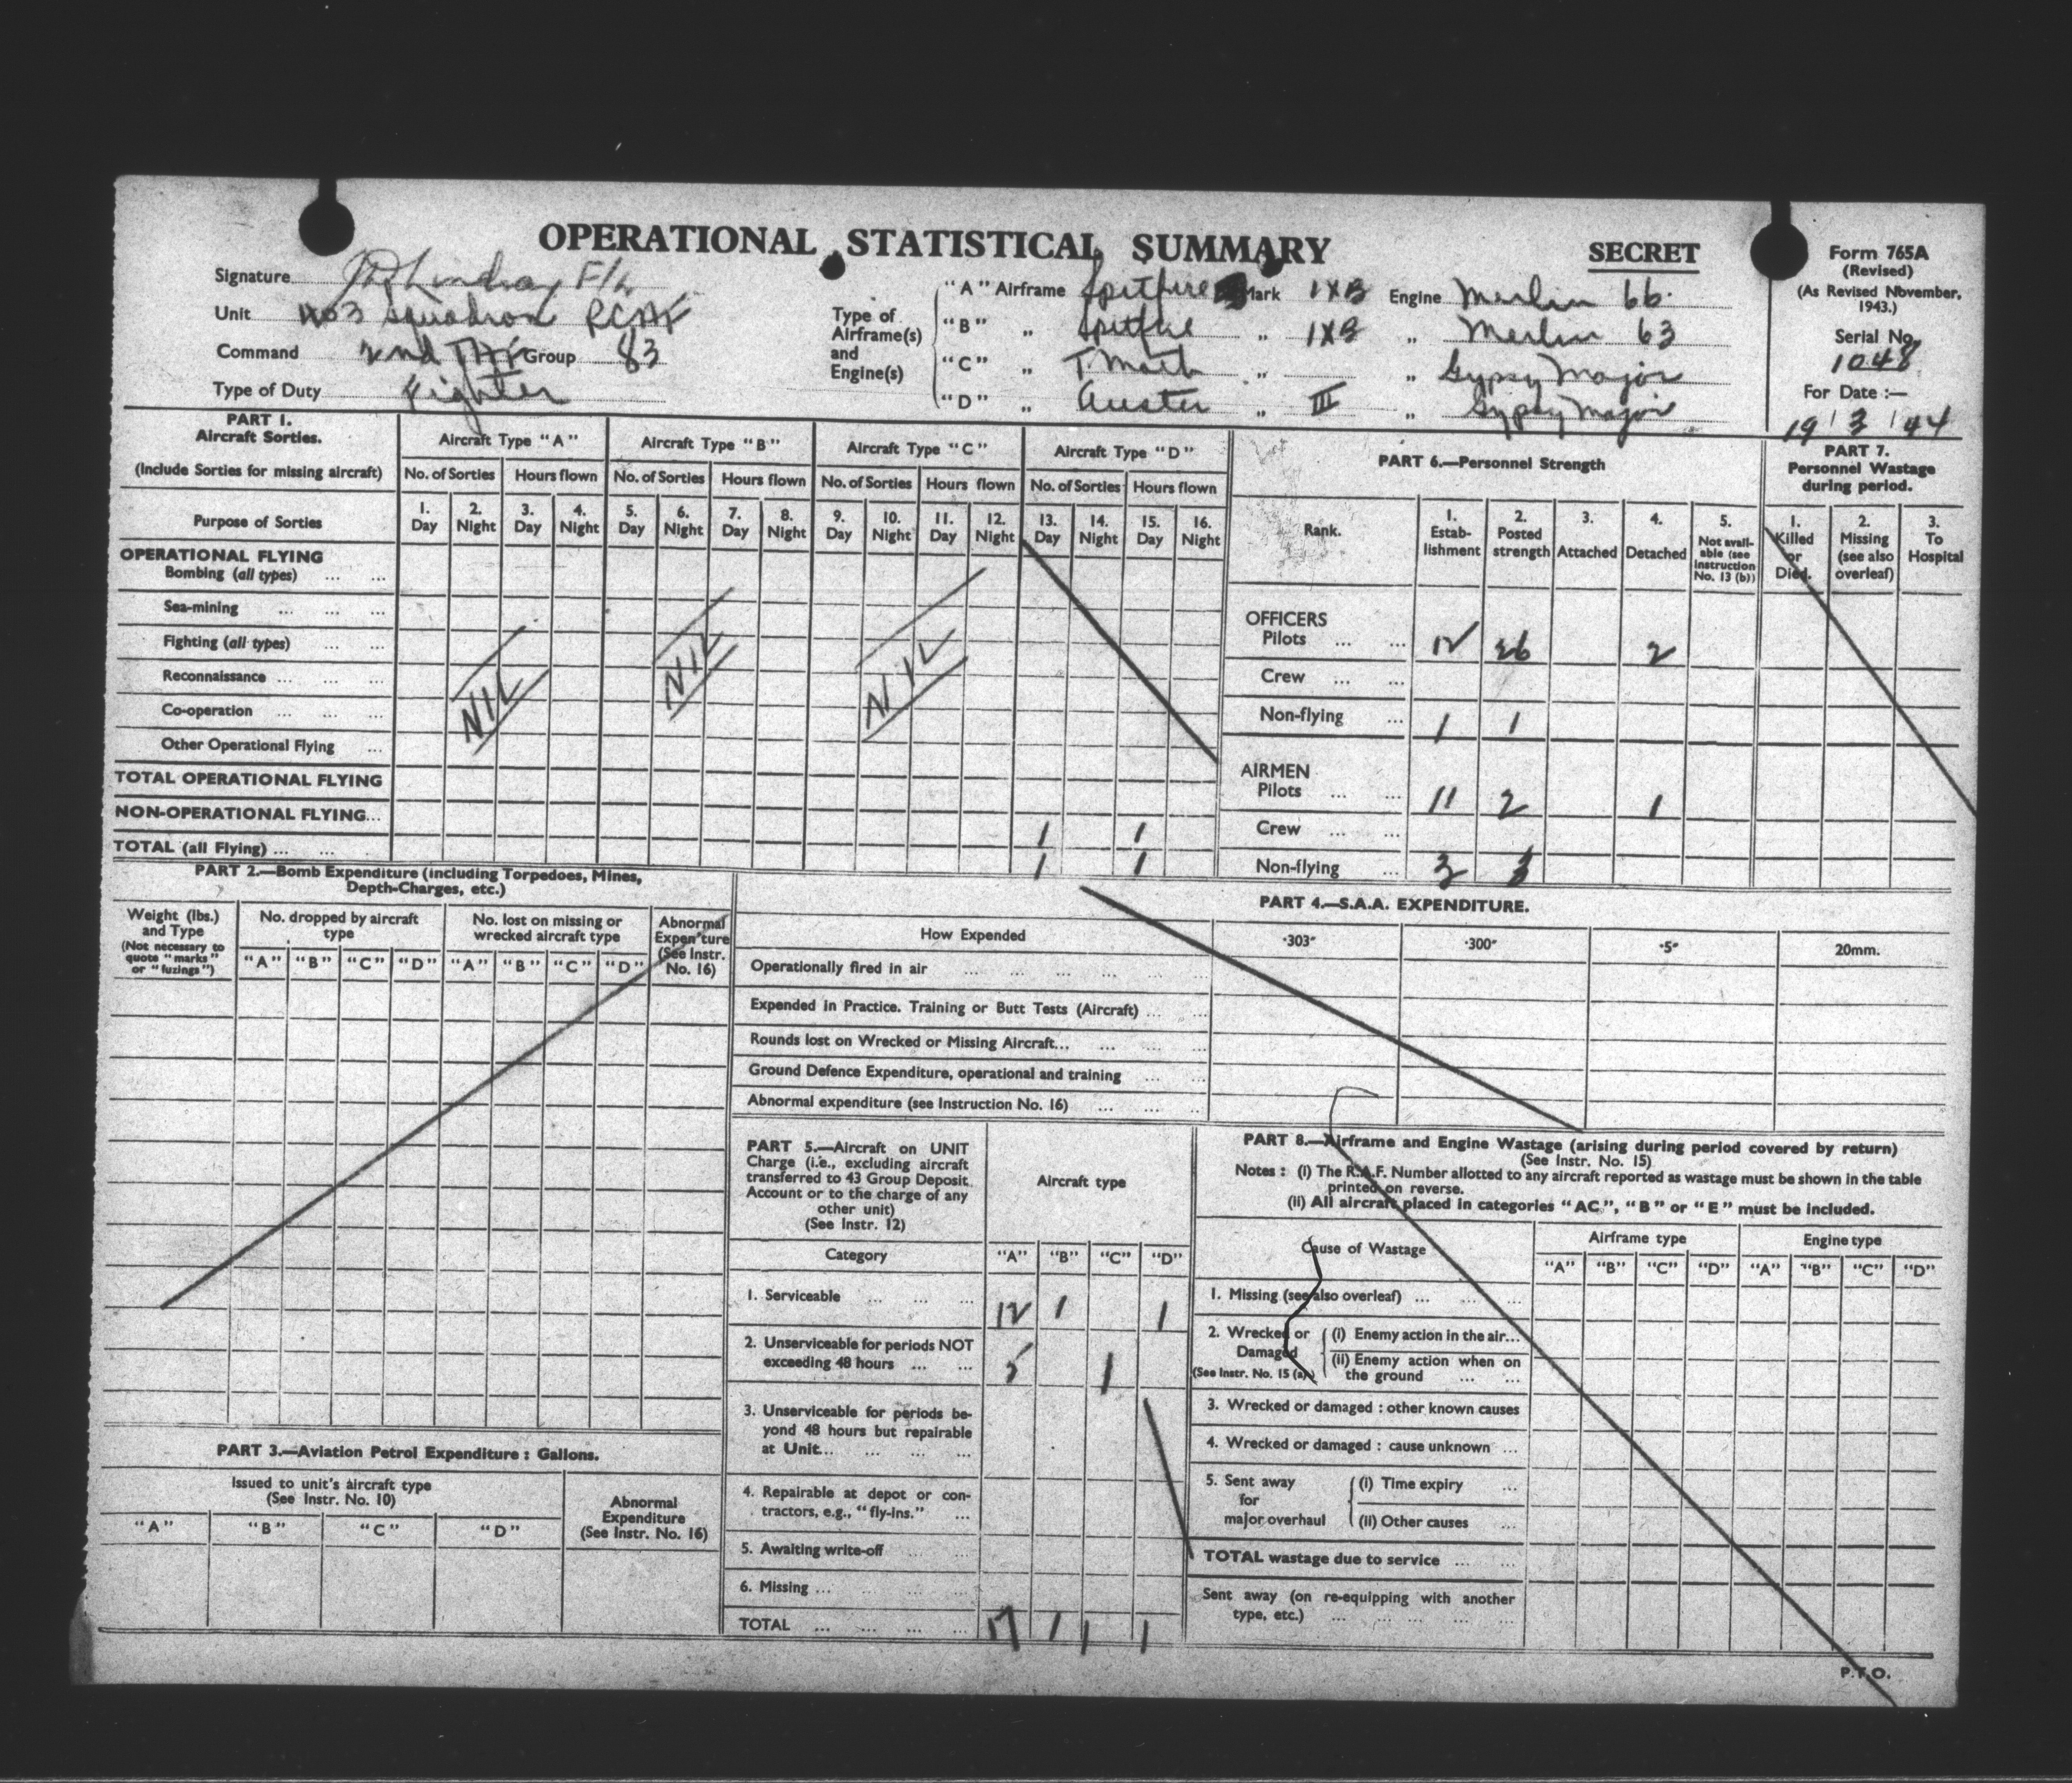 OPERATIONAL STATISTICAL SUMMARY
SECRET
Form 765A
(Revised)
(As Revised November, 1943.)
Serial No.
1048
For Date :—
19 / 3 / 44
Signature F/L
Unit 403 Squadron RCAF
Command 2nd TAF Group 83
Type of Duty Fighter
Type of Airframe(s) and Engine(s)
"A" Airframe Spitfire Mark IXB Engine Merlin 66.
"B" „ Spitfire „ IXB „ Merlin 63
"C" „ T. Moth „ „ Gypsy Major
"D" „ Auster „ III „ Gypsy Major
PART 1.
Aircraft Sorties.
(Include Sorties for missing aircraft)
Aircraft Type "A" Aircraft Type "B" Aircraft Type "C" Aircraft Type "D"
No. of Sorties Hours flown No. of Sorties Hours flown No. of Sorties Hours flown No. of Sorties Hours flown
Purpose of Sorties
1. Day 2. Night 3. Day 4. Night 5. Day 6. Night 7. Day 8. Night 9. Day 10. Night 11. Day 12. Night 13. Day 14. Night 15. Day 16. Night
OPERATIONAL FLYING
Bombing (all types) ... ...
Sea-mining ... ... ...
Fighting (all types) ... ...
Reconnaissance ... ... ...
Co-operation ... ... ...
Other Operational Flying ...
NIL NIL NIL
TOTAL OPERATIONAL FLYING
NON-OPERATIONAL FLYING... 1 1
TOTAL (all Flying) ... ... 1 1
PART 6.—Personnel Strength
Rank.
1. Estab-lishment 2. Posted strength 3. Attached 4. Detached 5. Not avail-able (see instruction No. 13 (b))
OFFICERS
Pilots ... ... 12 26 2
Crew ... ...
Non-flying ... 1 1
AIRMEN
Pilots ... ... 11 2 1
Crew ... ...
Non-flying ... 3 3
PART 7.
Personnel Wastage during period.
1. Killed or Died. 2. Missing (see also overleaf) 3. To Hospital
PART 2.—Bomb Expenditure (including Torpedoes, Mines,
Depth-Charges, etc.)
Weight (lbs.) and Type
(Not necessary to quote "marks" or "fuzings")
No. dropped by aircraft type
No. lost on missing or wrecked aircraft type
Abnormal Expen'ture (See Instr. No. 16)
"A" "B" "C" "D" "A" "B" "C" "D"
PART 4.—S.A.A. EXPENDITURE.
How Expended ·303" ·300" ·5" 20mm.
Operationally fired in air ... ... ... ... ...
Expended in Practice. Training or Butt Tests (Aircraft) ... ...
Rounds lost on Wrecked or Missing Aircraft... ... ... ...
Ground Defence Expenditure, operational and training ... ...
Abnormal expenditure (see Instruction No. 16) ... ... ...
PART 3.—Aviation Petrol Expenditure : Gallons.
Issued to unit's aircraft type
(See Instr. No. 10)
Abnormal Expenditure
(See Instr. No. 16)
"A" "B" "C" "D"
PART 5.—Aircraft on UNIT
Charge (i.e., excluding aircraft
transferred to 43 Group Deposit
Account or to the charge of any
other unit)
(See Instr. 12)
Aircraft type
Category "A" "B" "C" "D"
1. Serviceable ... ... ... 12 1 1
2. Unserviceable for periods NOT
exceeding 48 hours ... ... 5 1
3. Unserviceable for periods be-
yond 48 hours but repairable
at Unit... ... ... ...
4. Repairable at depot or con-
tractors, e.g., "fly-ins." ...
5. Awaiting write-off ... ...
6. Missing ... ... ... ...
TOTAL ... ... ... ... 17 1 1 1
PART 8.—Airframe and Engine Wastage (arising during period covered by return)
(See Instr. No. 15)
Notes : (i) The R.A.F. Number allotted to any aircraft reported as wastage must be shown in the table
printed on reverse.
(ii) All aircraft placed in categories "AC", "B" or "E" must be included.
Cause of Wastage
Airframe type Engine type
"A" "B" "C" "D" "A" "B" "C" "D"
1. Missing (see also overleaf) ... ... ...
2. Wrecked or Damaged (See Instr. No. 15 (a).)
(i) Enemy action in the air...
(ii) Enemy action when on
the ground ... ...
3. Wrecked or damaged : other known causes
4. Wrecked or damaged : cause unknown ...
5. Sent away for major overhaul
(i) Time expiry ...
(ii) Other causes ...
TOTAL wastage due to service ... ...
Sent away (on re-equipping with another
type, etc.) ... ... ... ... ...
P.T.O.